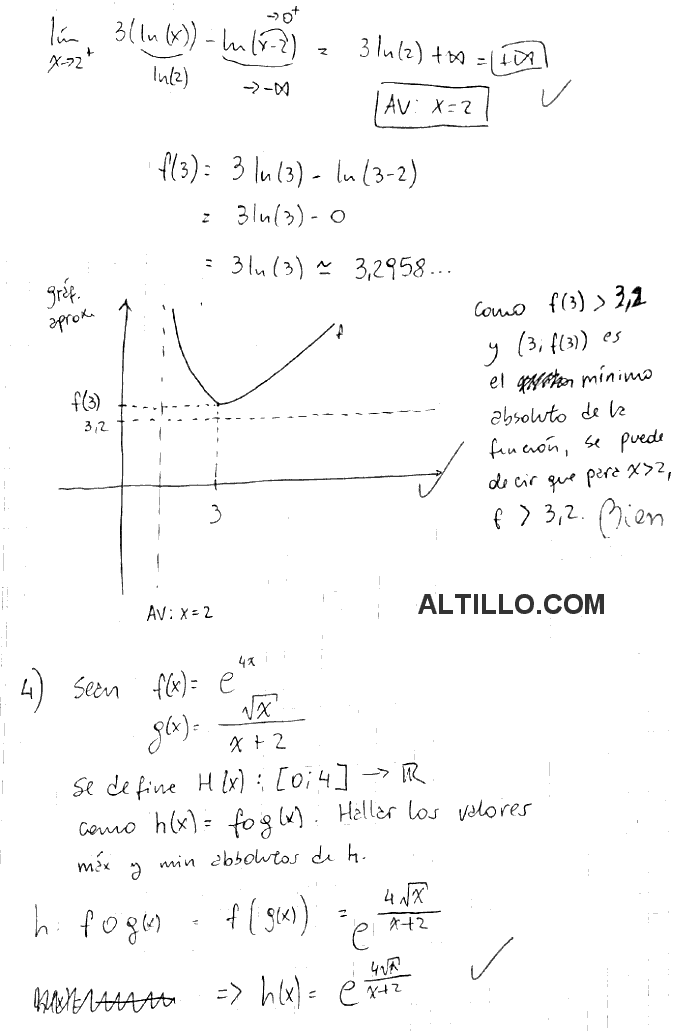 lím x→2⁺ 3(ln(x)) - ln(x-2) = 3ln(2) + ∞ = +∞
→0⁺
ln(2) → -∞
AV: x=2 ✓
f(3) = 3 ln(3) - ln(3-2)
= 3ln(3) - 0
= 3ln(3) ≃ 3,2958...
gráf.
aprox.
f
f(3)
3,2
3
AV: x=2
como f(3) > 3,2
y (3; f(3)) es
el mínimo
absoluto de la
función, se puede
decir que para x>2,
f > 3,2. Bien
ALTILLO.COM
4) Sean f(x) = e^{4x}
g(x) = √x / (x+2)
Se define H(x): [0;4] → ℝ
como h(x) = fog(x). Hallar los valores
máx y min absolutos de h.
h: fog(x) = f(g(x)) = e^{4√x / (x+2)}
=> h(x) = e^{4√x / (x+2)} ✓